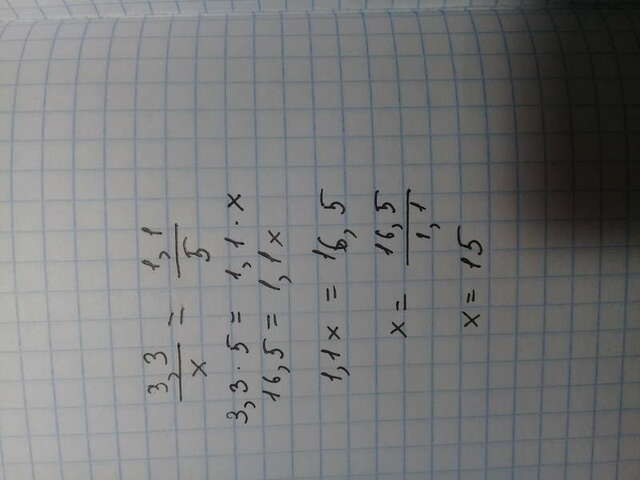 3,3/x = 1,1/5
3,3 · 5 = 1,1 · x
16,5 = 1,1x
1,1x = 16,5
x = 16,5/1,1
x = 15